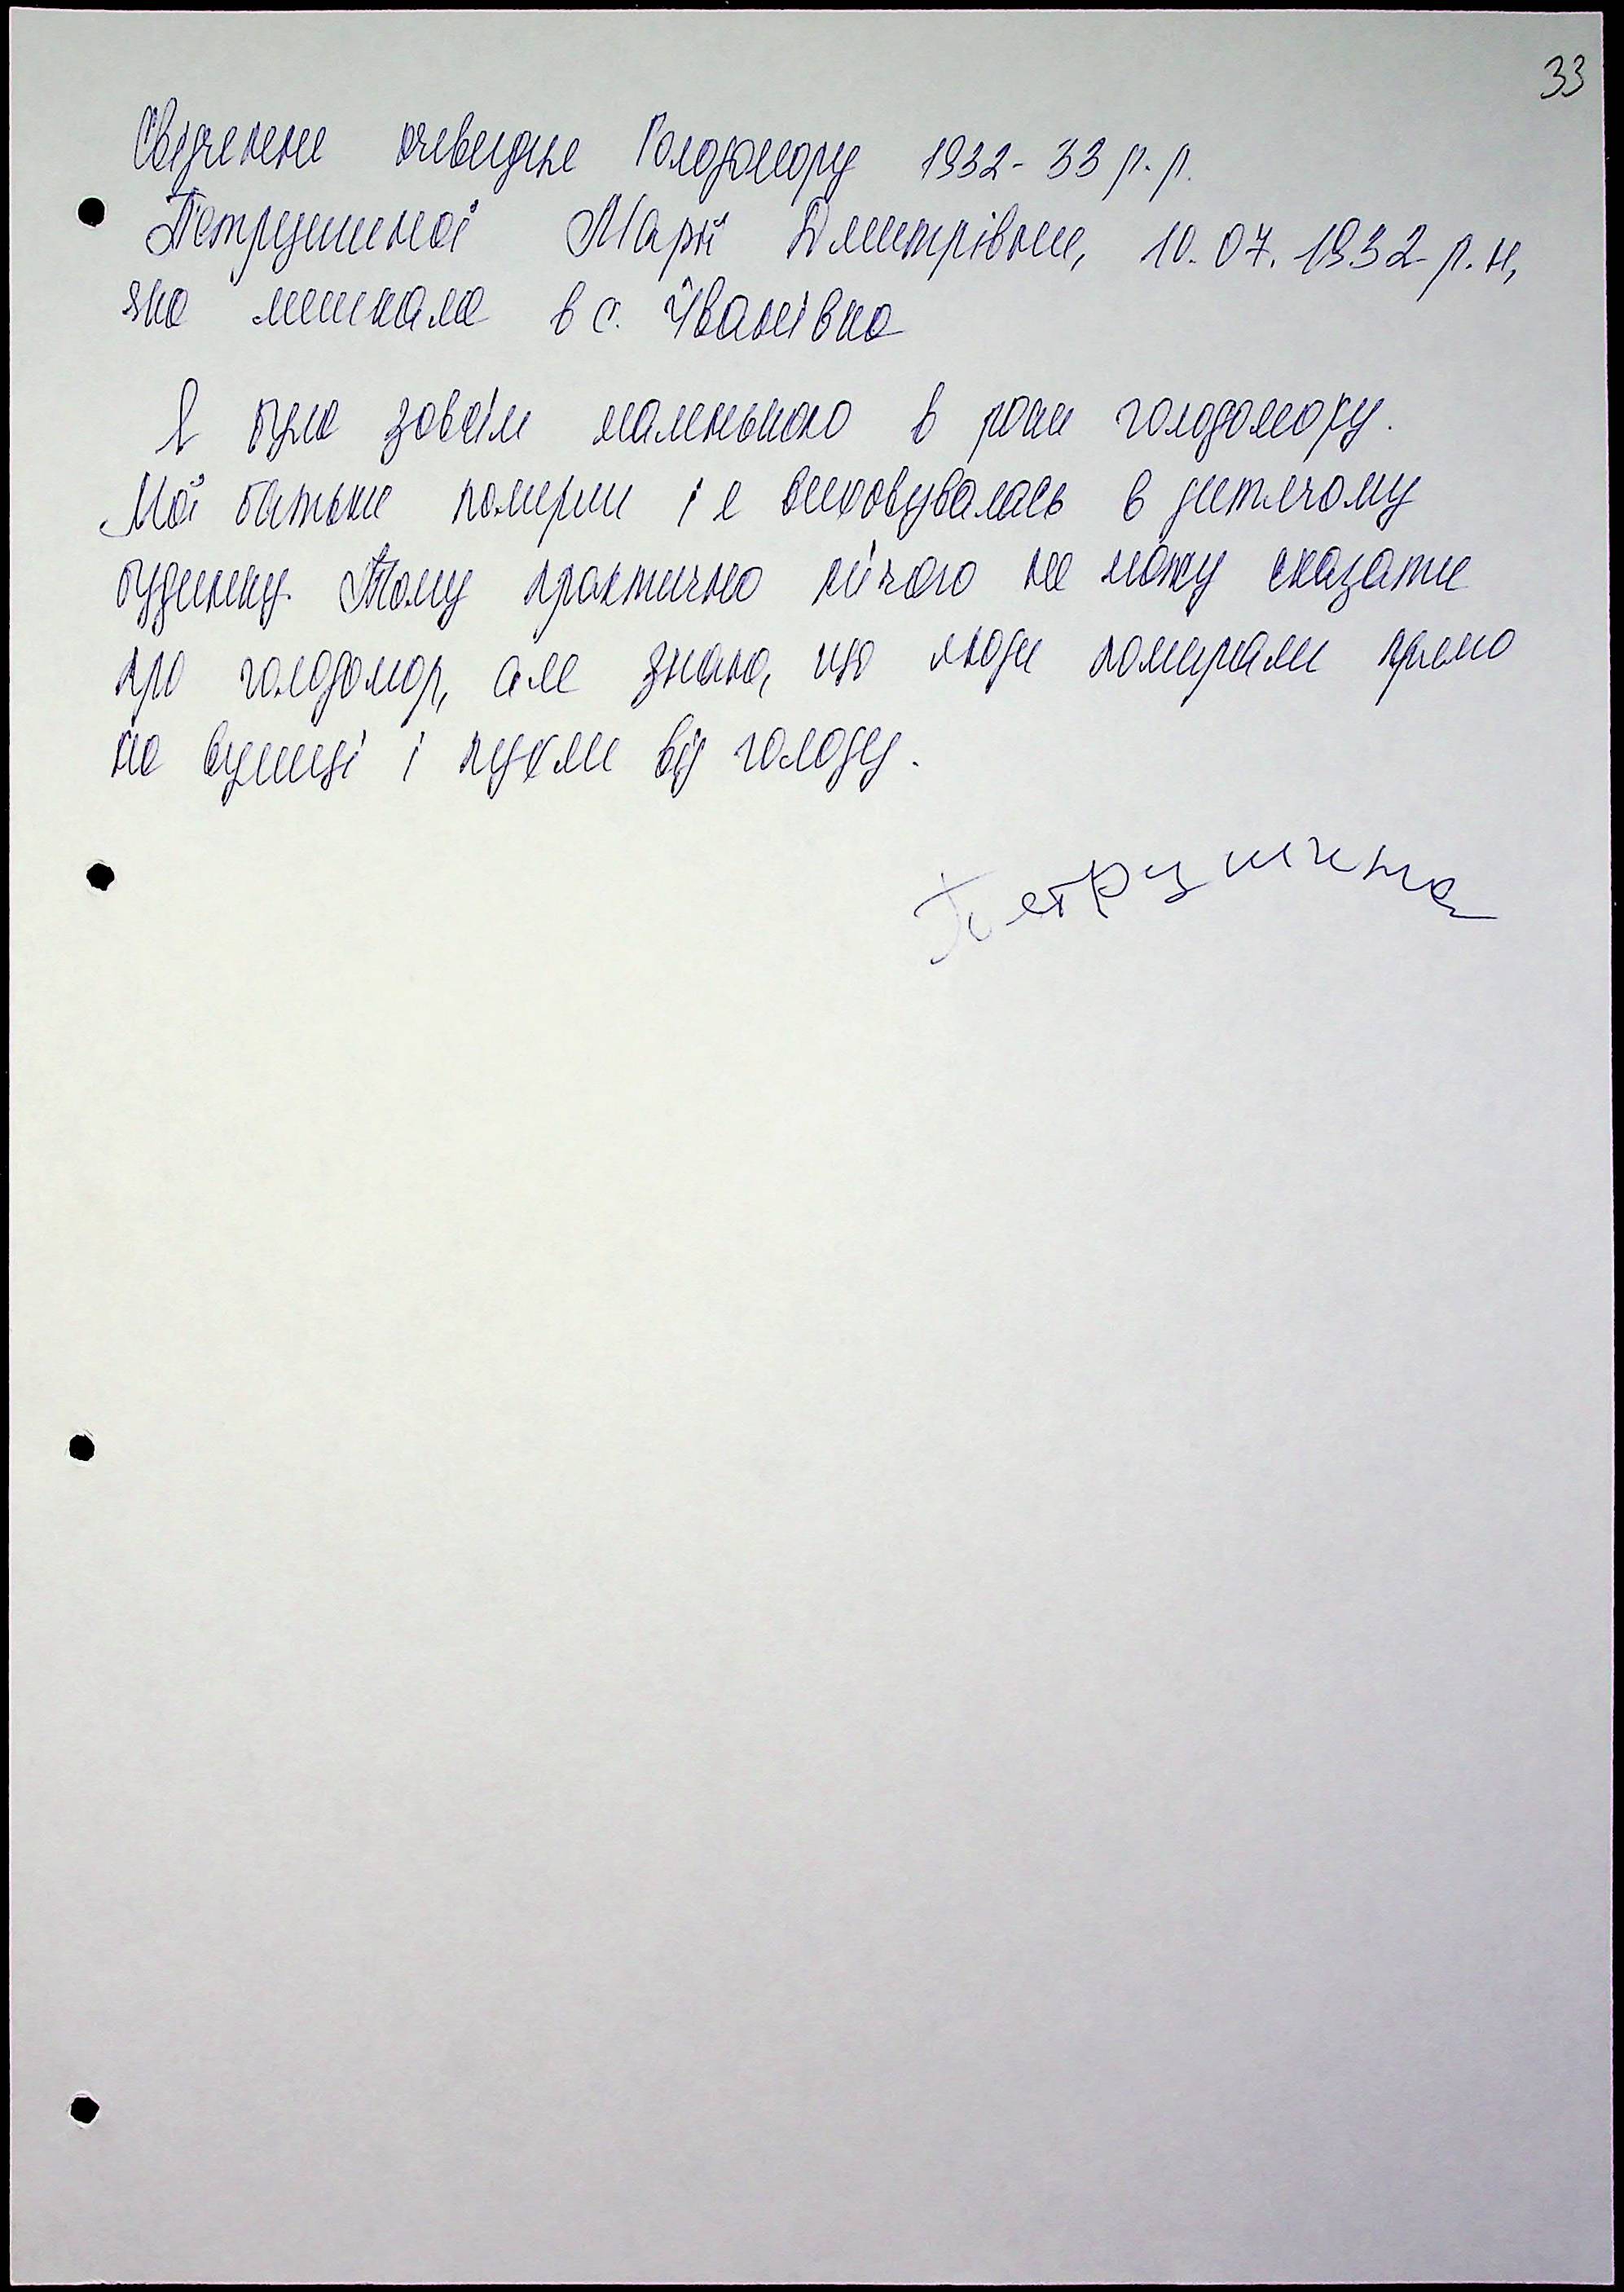 33
Свідчення очевидця Голодомору 1932-33 р.р.
Петрушиної Марії Дмитрівни, 10.07.1932 р.н,
яка мешкала в с. Іванівка
Я була зовсім маленькою в роки голодомору.
Мої батьки померли і я виховувалась в дитячому
будинку. Тому практично нічого не можу сказати
про голодомор, але знаю, що люди помирали прямо
на вулиці і пухли від голоду.
Петрушина